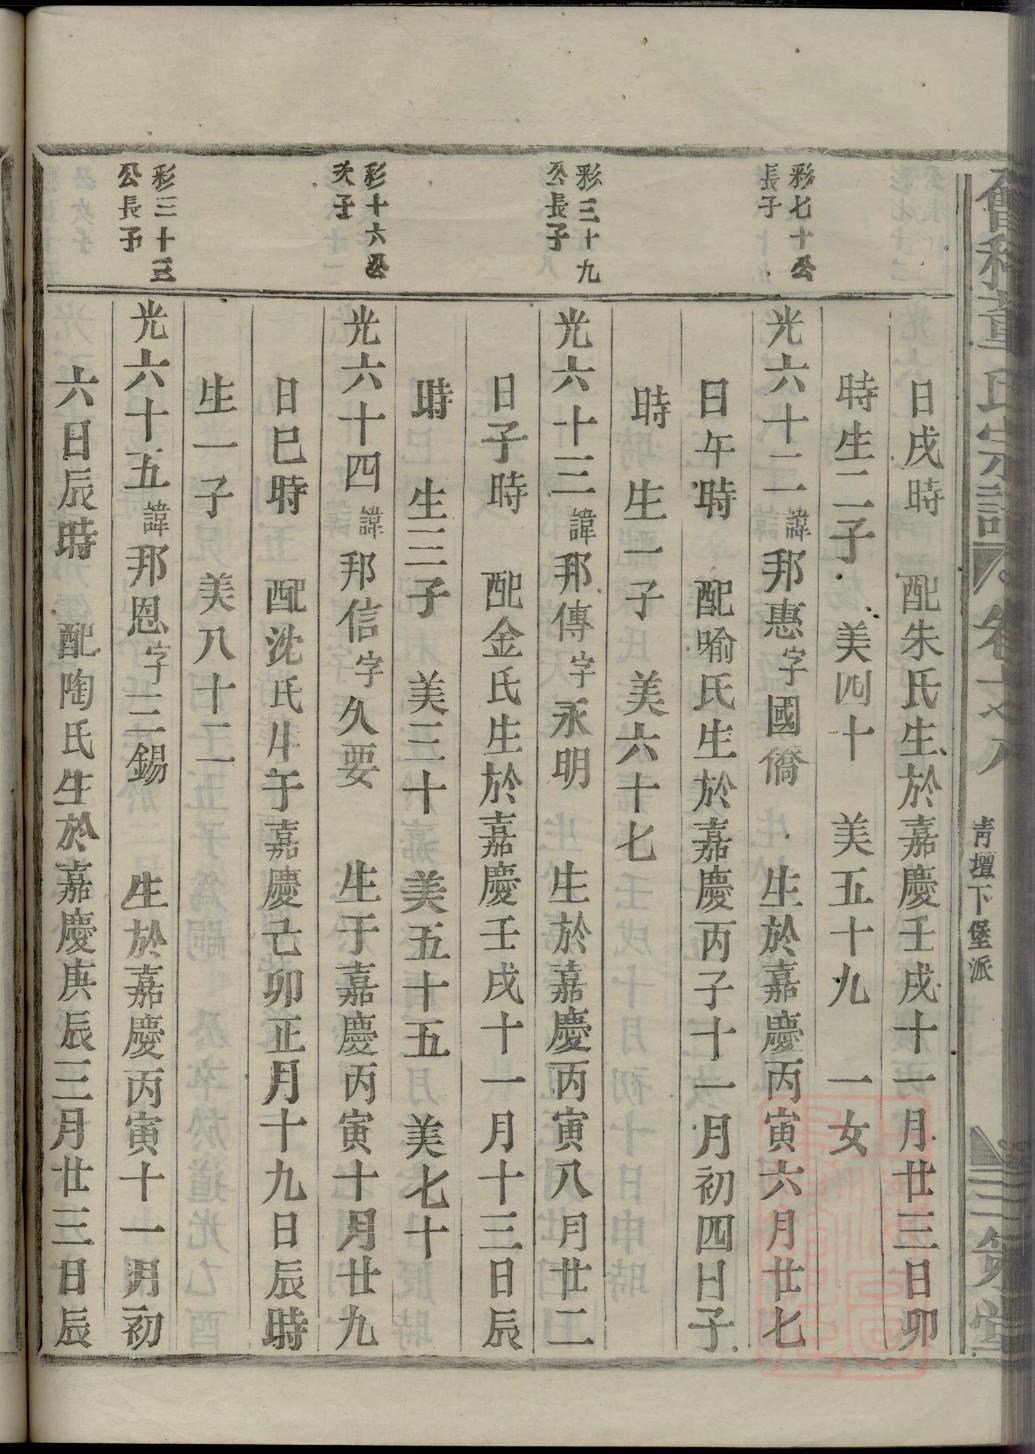 暨稽董氏宗譜 卷之八 青壇下堡派 三策堂
日戌時 配朱氏生於嘉慶壬戌十一月廿三日卯
時生二子 美四十 美五十九 一女
彩七十公
長子
光六十二諱邦惠字國僑 生於嘉慶丙寅六月廿七
日午時 配喻氏生於嘉慶丙子十一月初四日子
時 生一子 美六十七
彩三十九
公長子
光六十三諱邦傳字永明 生於嘉慶丙寅八月廿二
日子時 配金氏生於嘉慶壬戌十一月十三日辰
時 生三子 美三十 美五十五 美七十
彩十六公
次子
光六十四諱邦信字久要 生于嘉慶丙寅十月廿九
日巳時 配沈氏生于嘉慶己卯正月十九日辰時
生一子 美八十二
彩三十三
公長子
光六十五諱邦恩字三錫 生於嘉慶丙寅十一月初
六日辰時 配陶氏生於嘉慶庚辰三月廿三日辰